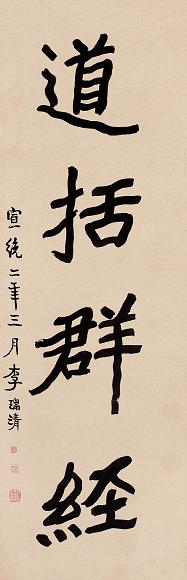 道括群経
宣統二年三月李瑞清